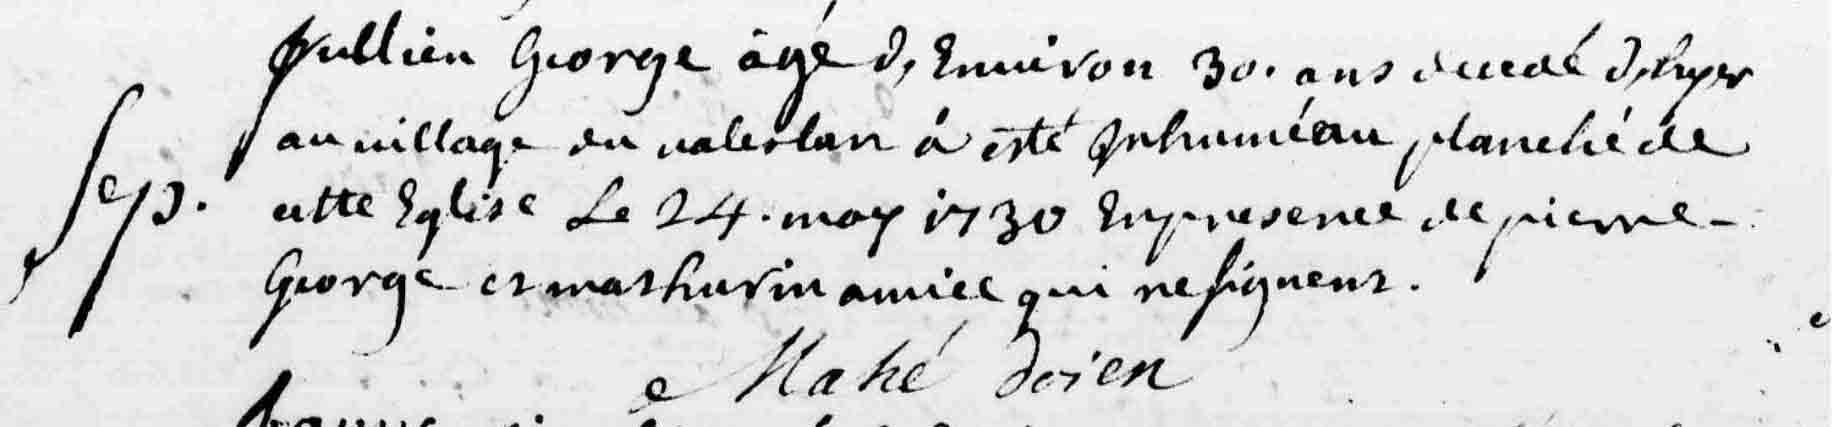 Jullien George âgé d, Environ 30. ans decedé d,hyer
Sep. au village du valeolan à esté Inhumé au planché de
cette Eglise Le 24. may 1730 En presence de pierre -
George et mathurin amice qui ne signent.
Mahé doien